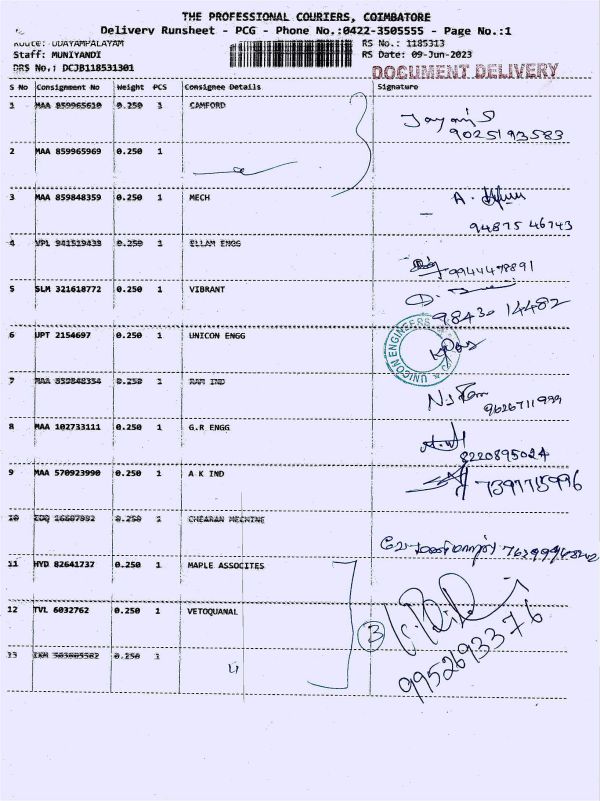 THE PROFESSIONAL COURIERS, COIMBATORE
Delivery Runsheet - PCG - Phone No.:0422-3505555 - Page No.:1
Route: UDAYAMPALAYAM RS No.: 1185313
Staff: MUNIYANDI RS Date: 09-Jun-2023
DRS No.: DCJB118531301 DOCUMENT DELIVERY
S No Consignment No Weight PCS Consignee Details Signature
1 MAA 859965610 0.250 3 CAMFORD
9025193583
2 MAA 859965969 0.250 1
3 MAA 859848359 0.250 1 MECH
94875 46743
4 VPL 941519433 0.250 1 ELLAM ENGG
9944478891
5 SLM 321618772 0.250 1 VIBRANT
98430 14482
6 UPT 2154697 0.250 1 UNICON ENGG
UNICON ENGINEERS
7 MAA 859848354 0.250 1 RAM IND
9626711999
8 MAA 102733111 0.250 1 G.R ENGG
8220895024
9 MAA 570923990 0.250 1 A K IND
7397715996
10 0.250 1 CHEARAN MECHINE
11 HYD 82641737 0.250 1 MAPLE ASSOCITES
12 TVL 6032762 0.250 1 VETOQUANAL
3
9952693376
13 0.250 1